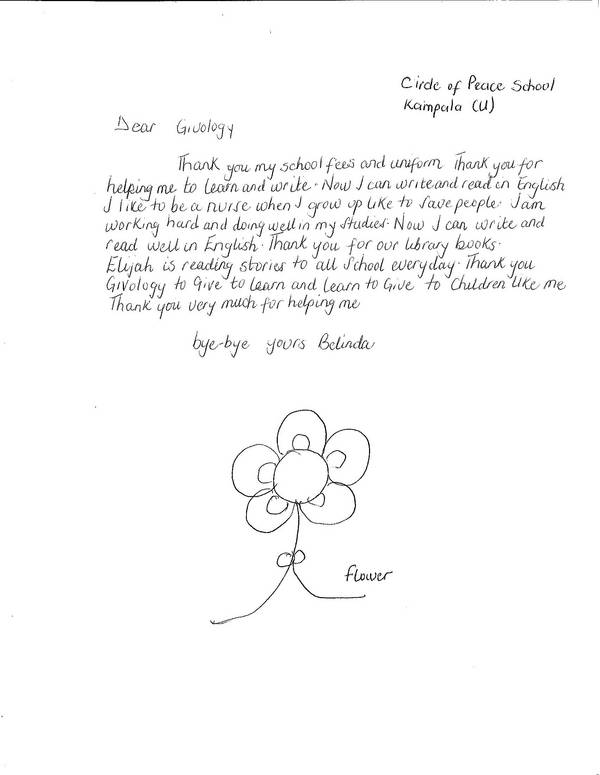 Circle of Peace School
Kampala (U)
Dear Givology
Thank you my school fees and uniform Thank you for
helping me to learn and write. Now I can write and read in English
I like to be a nurse when I grow up like to save people. I am
working hard and doing well in my studies. Now I can write and
read well in English. Thank you for our library books.
Elijah is reading stories to all School everyday. Thank you
Givology to Give to Learn and Learn to Give to Children like me
Thank you very much for helping me
bye-bye yours Belinda
flower